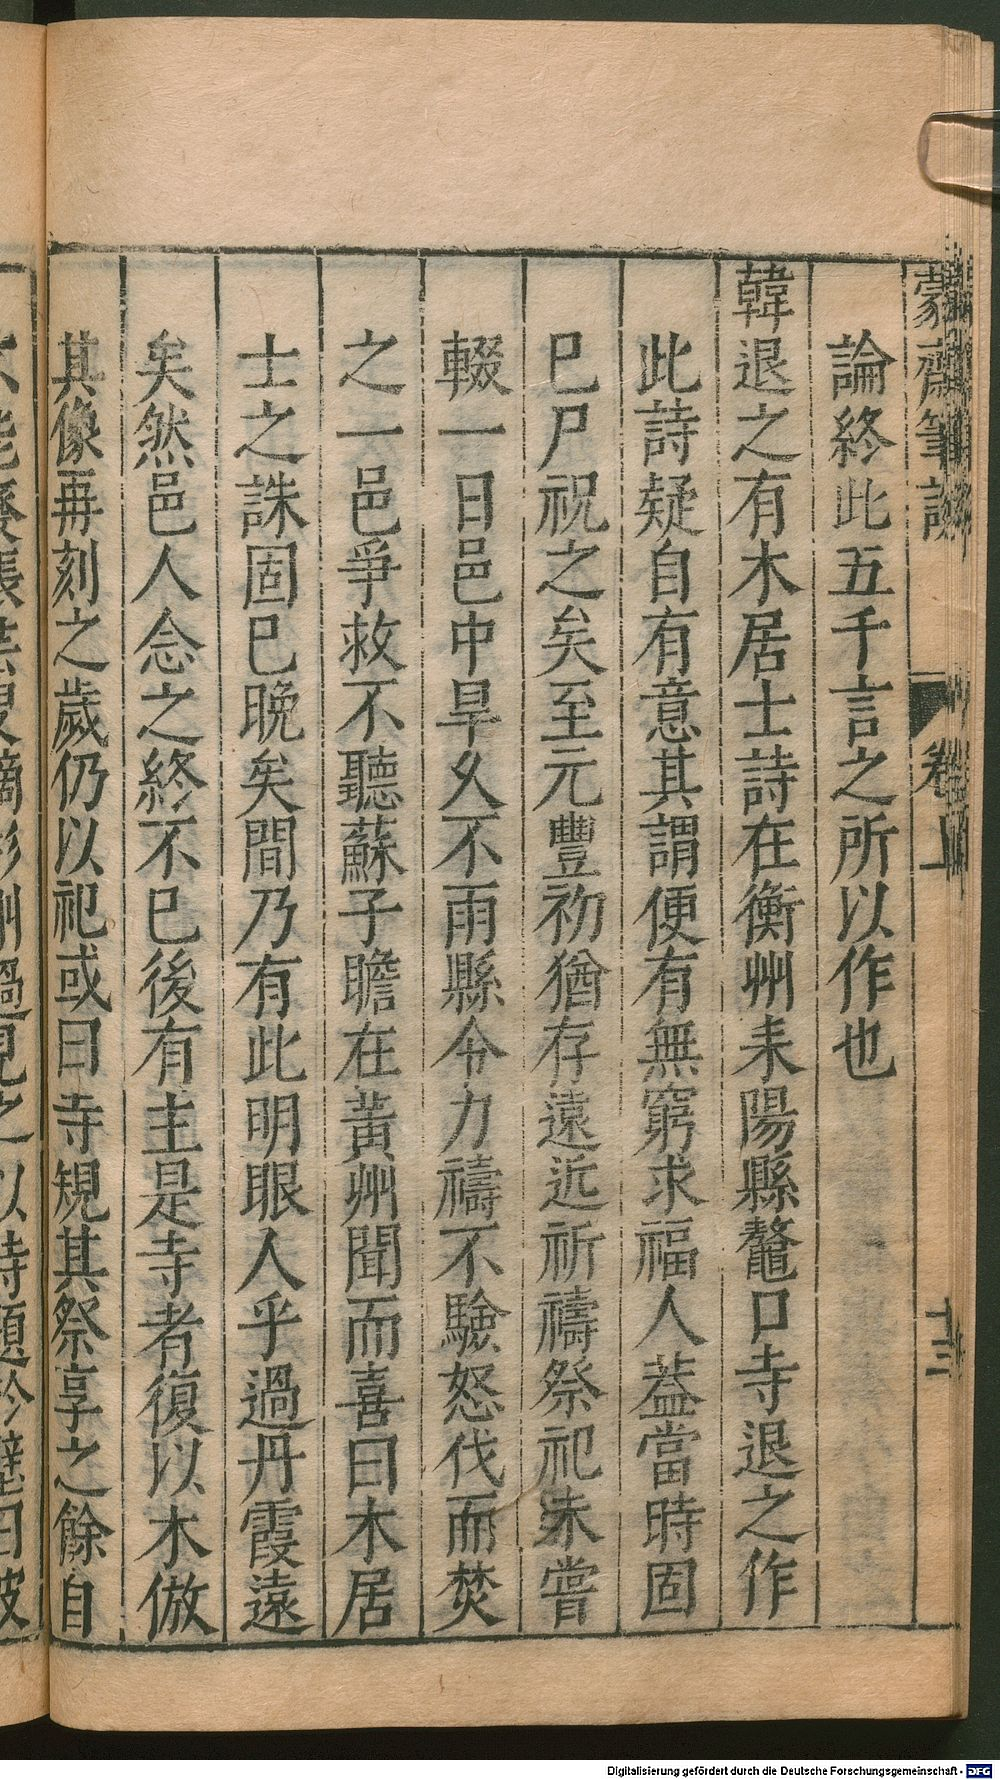 蒙齋筆談 卷上 十三
論終此五千言之所以作也
韓退之有木居士詩在衡州耒陽縣鼇口寺退之作
此詩疑自有意其謂便有無窮求福人葢當時固
巳尸祝之矣至元豐初猶存遠近祈禱祭祀未嘗
輟一日邑中旱久不雨縣令力禱不驗怒伐而焚
之一邑爭救不聽蘇子瞻在黃州聞而喜曰木居
士之誅固巳晩矣間乃有此明眼人乎過丹霞遠
矣然邑人念之終不巳後有主是寺者復以木倣
其像再刻之歲仍以祀或曰寺規其祭享之餘自
過見之以詩題於壁曰波
Digitalisierung gefördert durch die Deutsche Forschungsgemeinschaft - DFG